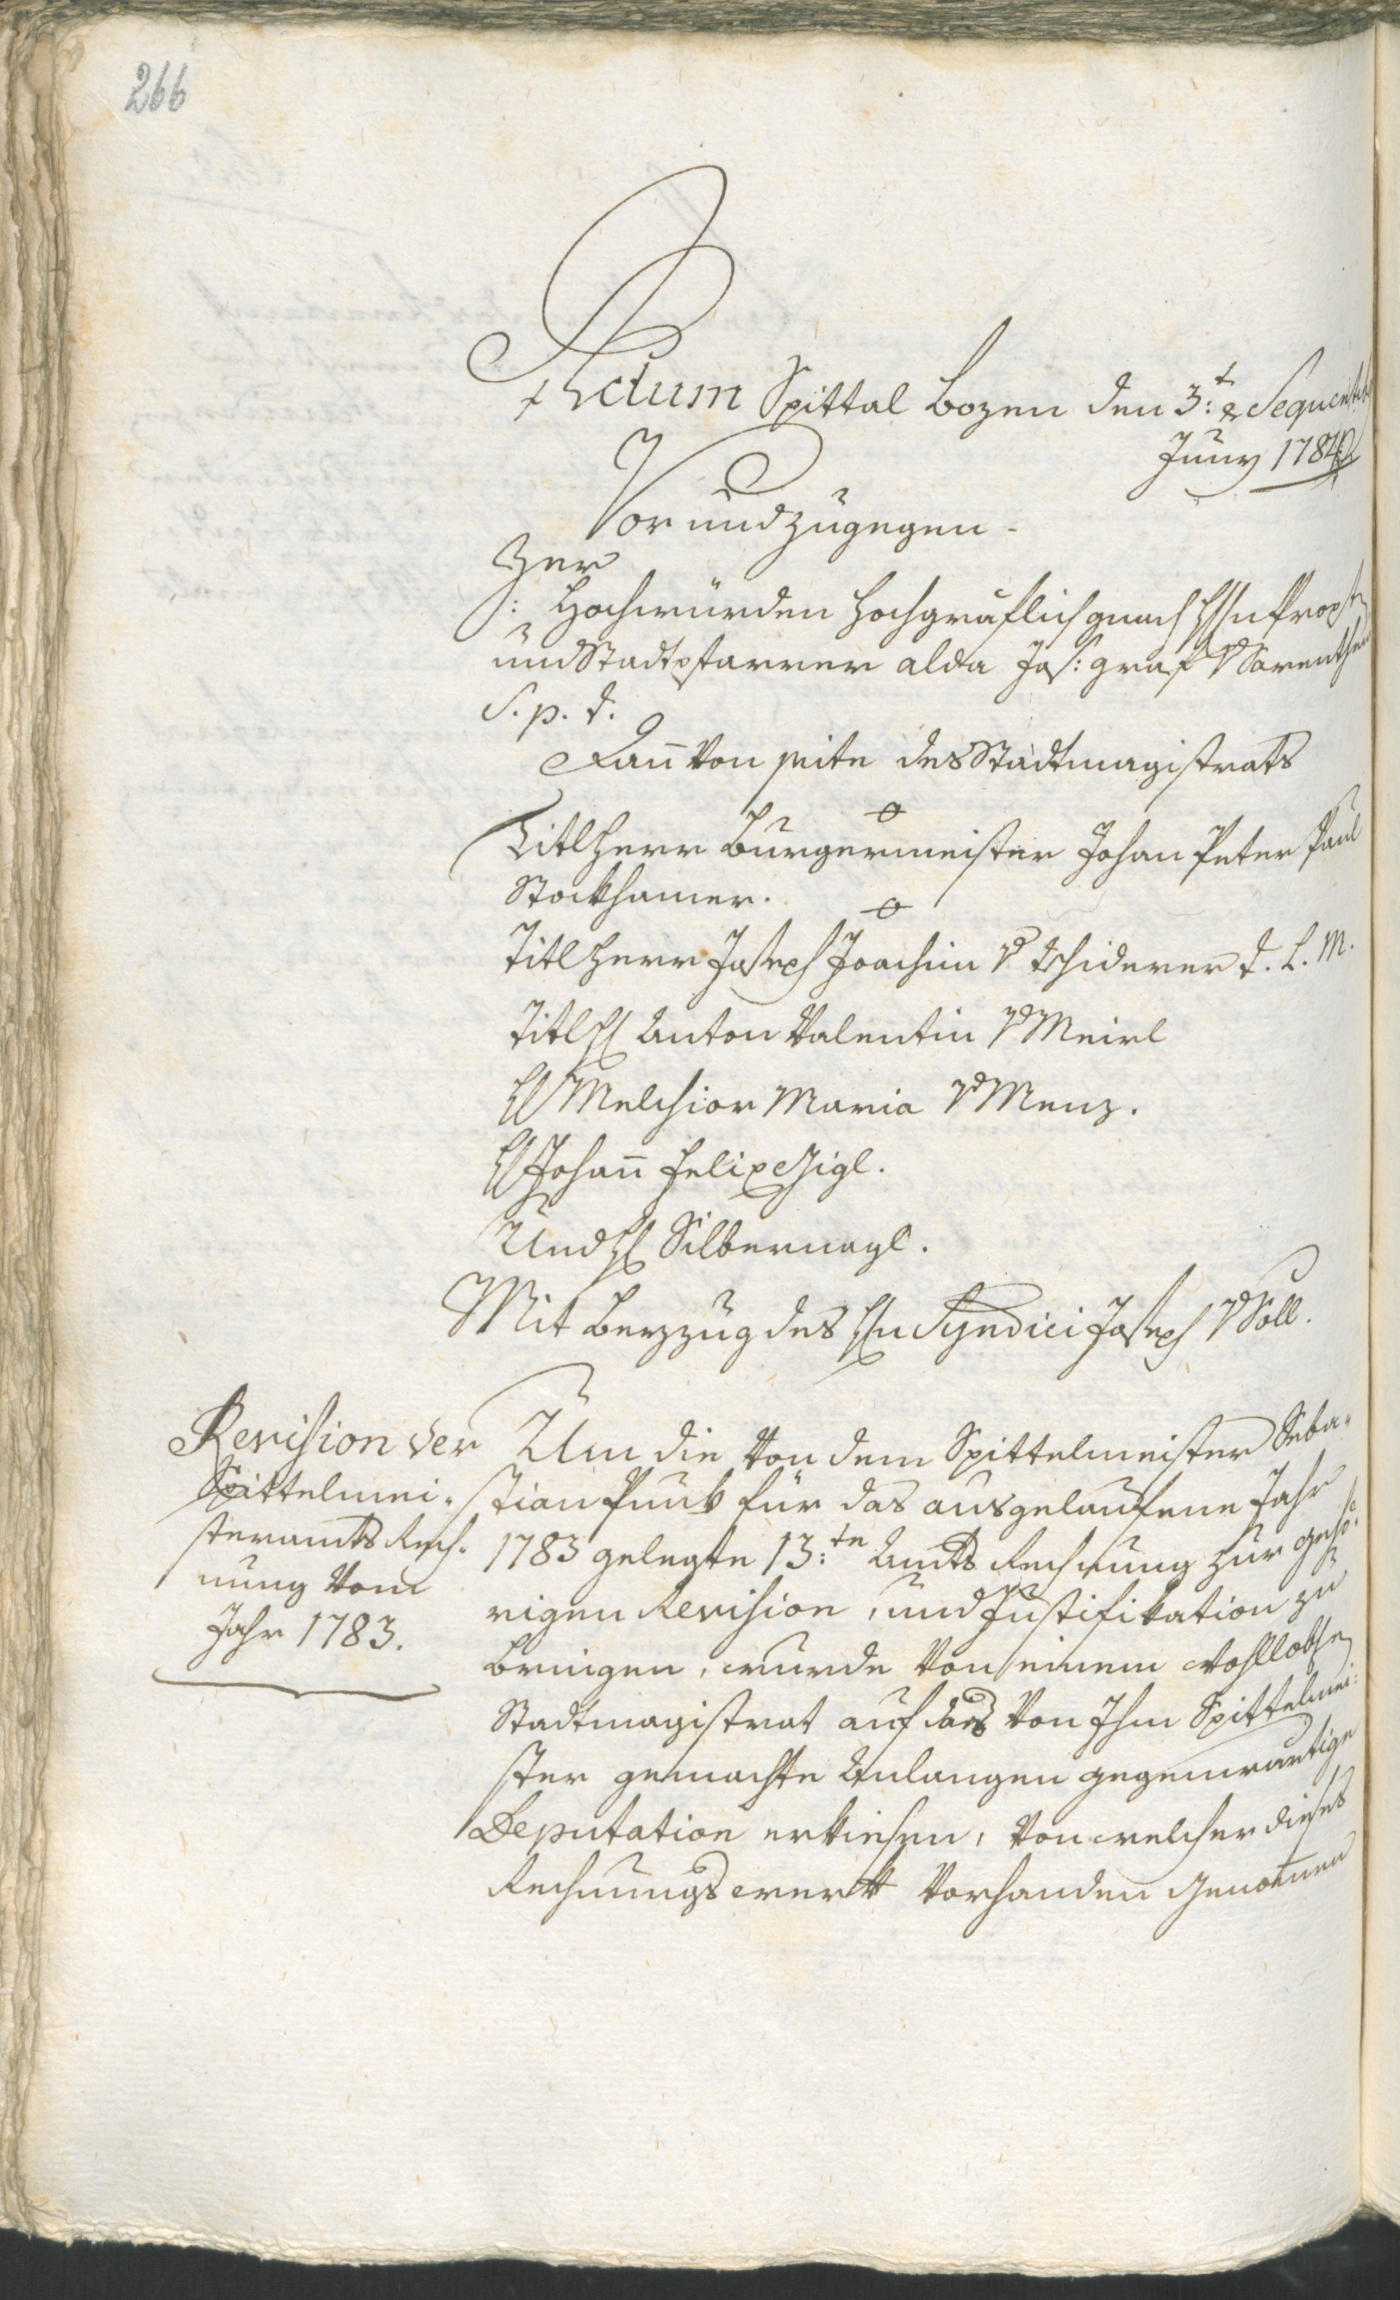 266
Actum Spittal Bozen den 3:t & Sequentibus
Juny 1784
Vor und zugegen.
Ihro
: Hochwürden Hochgräflich gnad Hhn Propst
und Stadtpfarrer alda Jos: Graf v Sarenthein
S. p. t.
Dan̄ von seite des Stadtmagistrats
Titl Herr Burgermeister Johan Peter Paul
Stockhamer.
Titl Herr Joseph Joachim v Tschiderer t. L. M.
Titl H Anton Valentin v Meirl
H Melchior Maria v Menz.
H Johan̄ Felix Gigl.
Und H Silbernagl.
Mit Beyzug des Hn Syndici Joseph v Söll.
Revision der
Spittelmei-
steramts Rech-
nung vom
Jahr 1783.
Um die von dem Spittelmeister Seba-
stian Punk für das ausgelaufene Jahr
1783 gelegte 13:te Amts Rechnung zur gehö-
rigen Revision, und Justifikation zu
bringen, wurde von einem Wohllobln
Stadtmagistrat auf das von Ihm Spittelmei-
ster gemachte Anlangen gegenwärtige
Deputation erkiesen, von welcher dieses
Rechnungswerk vorhanden genohmen